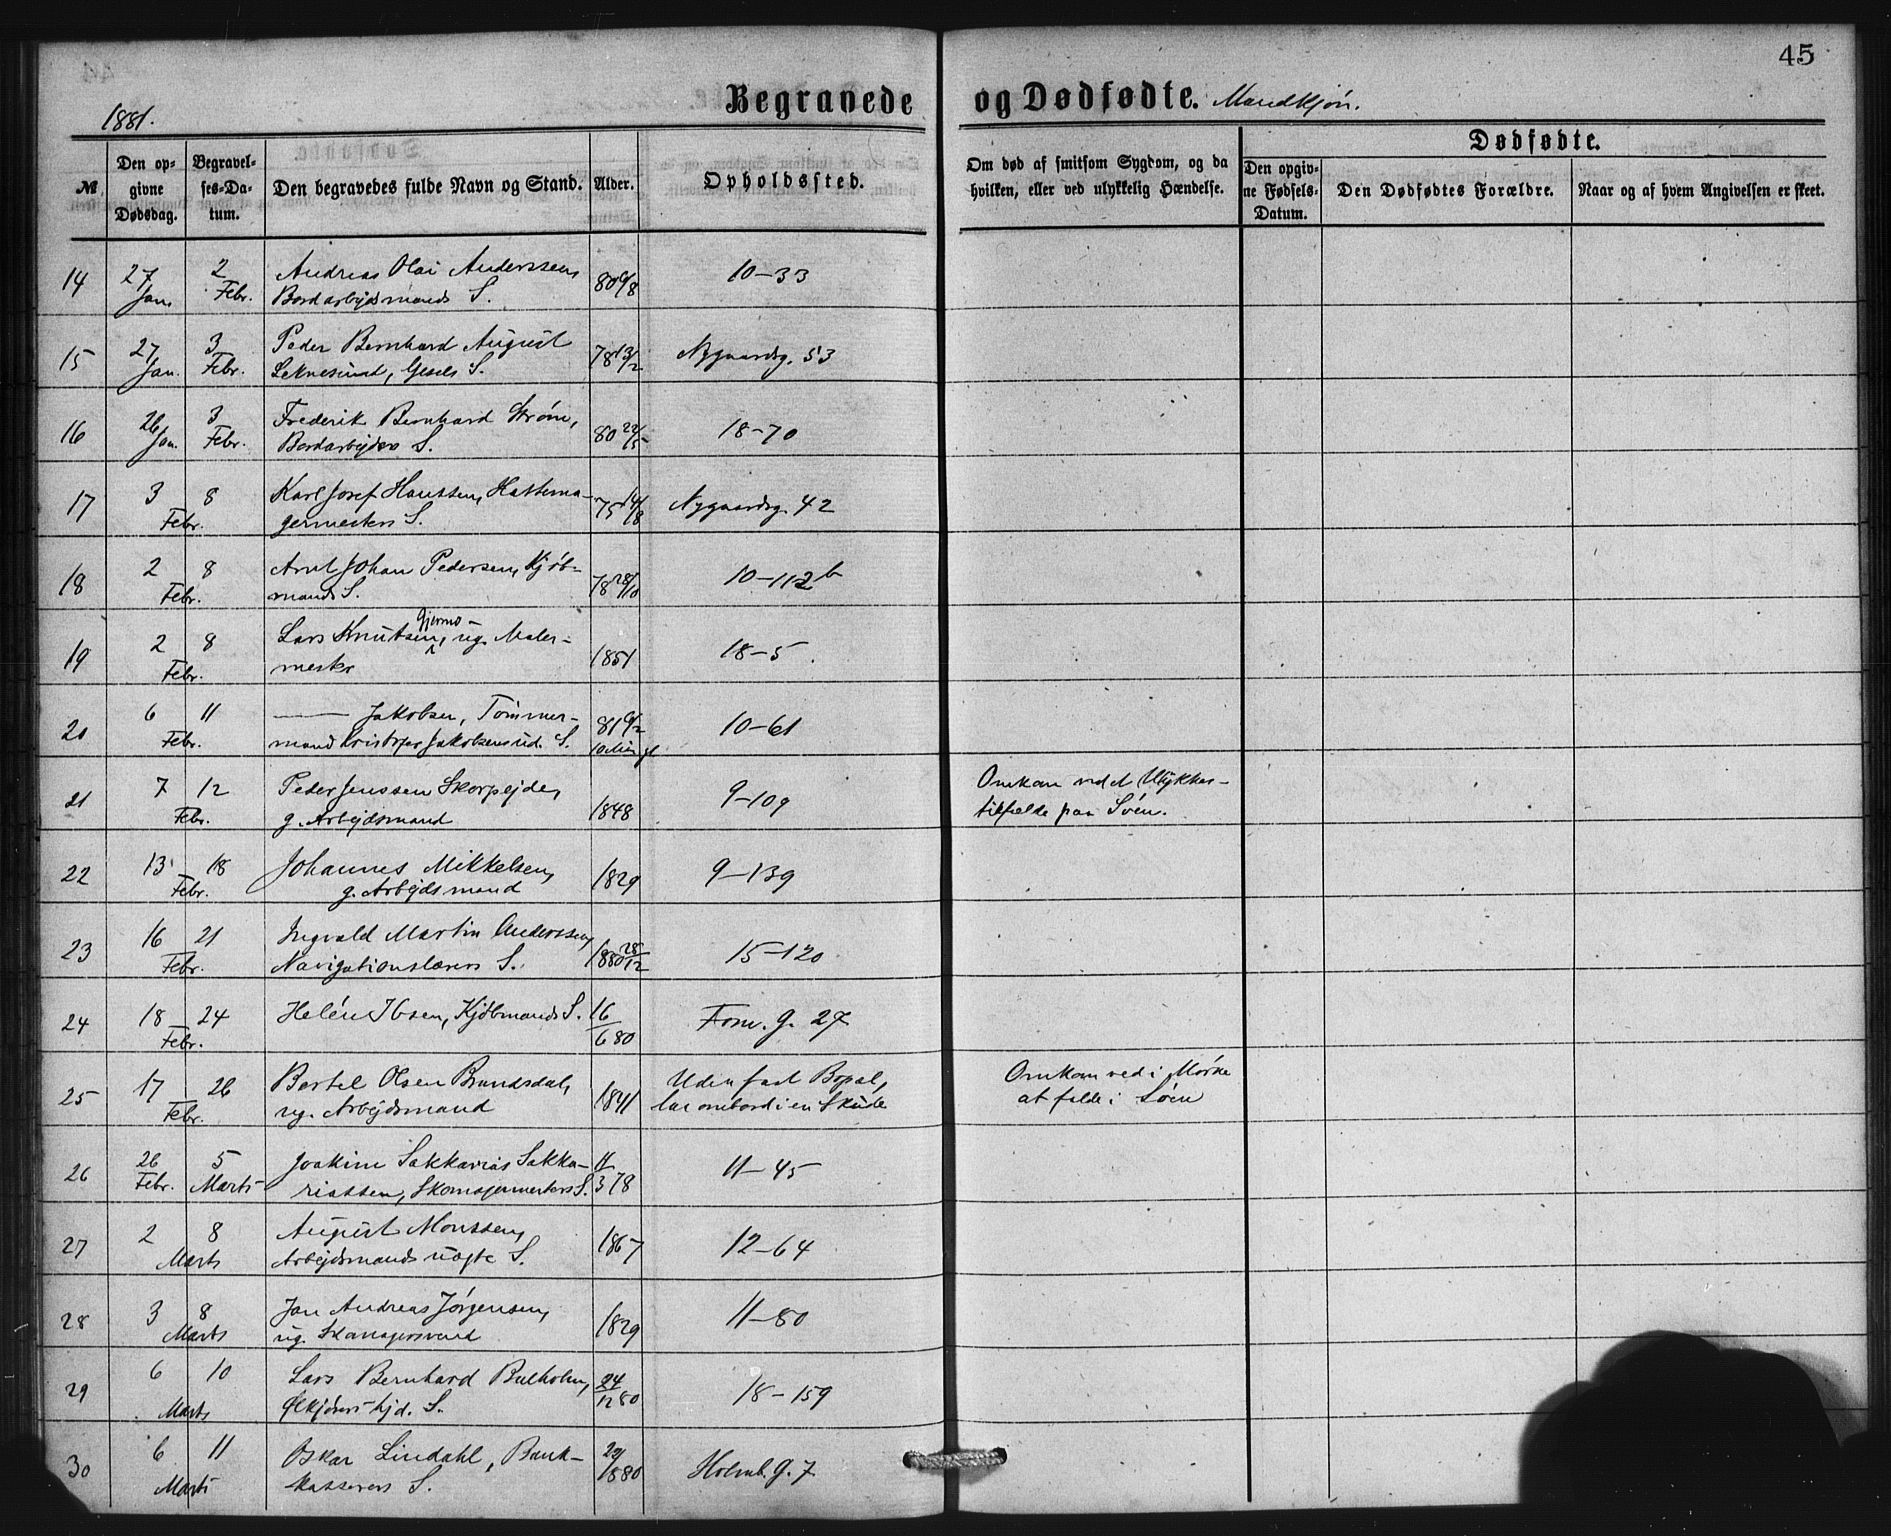 45
1881.
Begravede og Dødfødte. Mandkjøn.
Dødfødte.
№ Den opgivne Dødsdag. Begravelses-Datum. Den begravedes fulde Navn og Stand. Alder. Opholdssted. Om død af smitsom Sygdom, og da hvilken, eller ved ulykkelig Hændelse. Den opgivne Fødsels-Datum. Den Dødfødtes Forældre. Naar og af hvem Angivelsen er skeet.
14 27 Jan. 2 Febr. Andreas Olai Anderssen, 80 9/8 10-33
Bordarbejdsmands S.
15 27 Jan. 3 Febr. Peder Bernhard August 78 13/2 Nygaardsg. 53
S.
16 26 Jan. 3 Febr. Frederik Bernhard Strøm, 80 22/5 18-70
Bordarbejders S.
17 3 8 Febr. Karl Josef Hanssen, Hattema- 75 14/8 Nygaardsg. 42
germesters S.
18 2 8 Febr. Arnt Johan Pedersen, Kjøb- 78 28/10 10-112b
mands S.
19 2 8 Febr. Lars Knutsen Gjermo-, ug. Maler- 1851 18-5.
mester
20 6 11 Febr. —— Jakobsen, Tømmer- 81 6/2 10-61
mand Kristofer Jakobsens ud. S. 10 Min. gl.
21 7 12 Febr. Peder Jenssen Skorpejde, 1848 9-109 Omkom ved et Ulykkes-
g. Arbejdsmand tilfælde paa Søen.
22 13 18 Febr. Johannes Mikkelsen, 1829 9-139
g. Arbejdsmand
23 16 21 Febr. Ingvald Martin Anderssen, 1880 28/12 15-120
Navigationslærers S.
24 18 24 Febr. Helén Ibsen, Kjøbmands S. 16/6 80 Fosw. g. 27
25 17 26 Febr. Bertel Olsen Brundsdal, 1841 Uden fast Bopæl, Omkom ved i Mørke
ug. Arbejdsmand laa ombord i en Skude at falde i Søen
26 26 Febr. 5 Marts Joakim Sakkarias Sakka- 11/3 78 11-45
riassen, Skomagermesters S.
27 2 8 Marts August Monssen, 1867 12-64
Arbejdsmands uægte S.
28 3 8 Marts Jan Andreas Jørgensen, 1829 11-80
ug. Skomagersvend
29 6 10 Marts Lars Bernhard Bulholm, 24/12 80 18-159
Ølkjørers S.
30 6 11 Marts Oskar Lindahl, Bank- 22/1880 Holmb. g. 7
kasserers S.